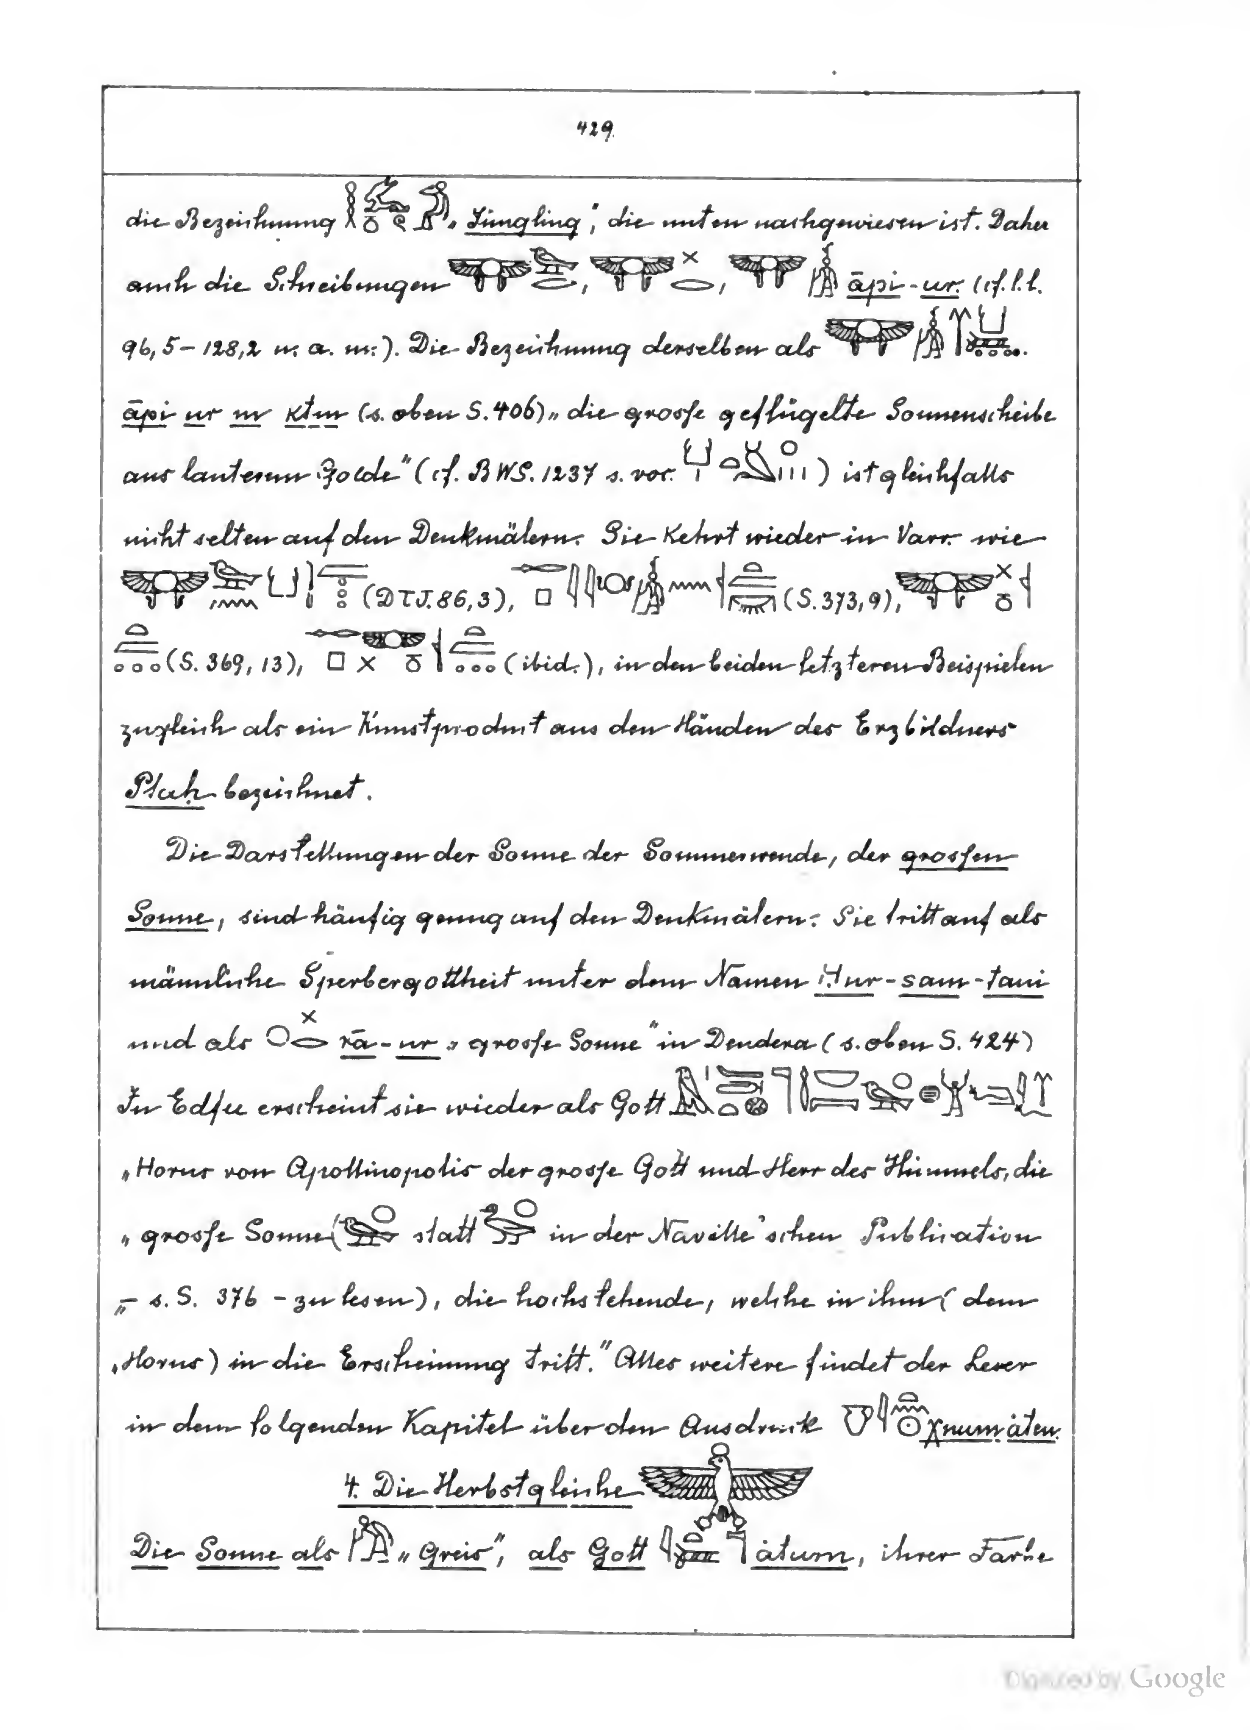 429.
die Bezeichnung „Jüngling“, die unten nachgewiesen ist. Daher
auch die Schreibungen , , āpi-ur. (cf. l.l.
96,5 – 128,2 u. a. m.). Die Bezeichnung derselben als
āpi ur m ktm (s. oben S. 406) „die grosse geflügelte Sonnenscheibe
aus lauterem Golde“ (cf. BWS. 1237 s. vor. ) ist gleichfalls
nicht selten auf den Denkmälern. Sie kehrt wieder in Varr. wie
(DTJ. 86,3), (S. 373,9),
(S. 369, 13), (ibid.), in den beiden letzteren Beispielen
zugleich als ein Kunstproduct aus den Händen des Erzbildners
Ptaḥ bezeichnet.
Die Darstellungen der Sonne der Sommerwende, der grossen
Sonne, sind häufig genug auf den Denkmälern. Sie tritt auf als
männliche Sperbergottheit unter dem Namen Ḥur-sam-taui
und als rā-ur „grosse Sonne“ in Dendera (s. oben S. 424)
In Edfu erscheint sie wieder als Gott
„Horus von Apollinopolis der grosse Gott und Herr des Himmels, die
„grosse Sonne ( statt in der Naville'schen Publication
„– s. S. 376 – zu lesen), die hochstehende, welche in ihm (dem
„Horus) in die Erscheinung tritt.“ Alles weitere findet der Leser
in dem folgenden Kapitel über den Ausdruck χnum äten.
4. Die Herbstgleiche
Die Sonne als „Greis“, als Gott ätum, ihrer Farbe
Digitized by Google